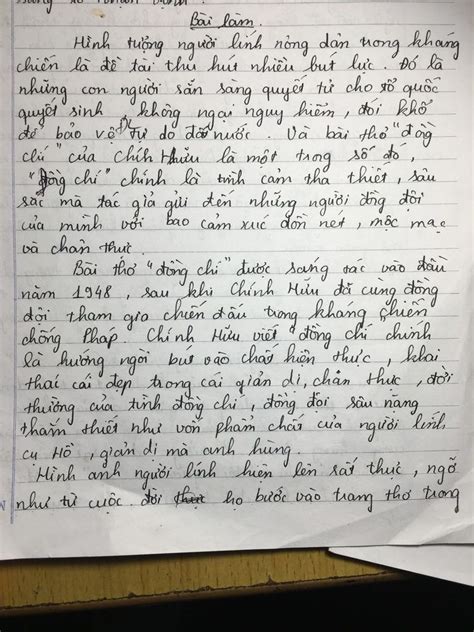 Bài làm.
Hình tượng người lính nông dân trong kháng
chiến là đề tài thu hút nhiều but lực. Đó là
những con người sẵn sàng quyết tử cho tổ quốc
quyết sinh, không ngại nguy hiểm, đói khổ
để bảo vệ tự do đất nước. Và bài thơ "đồng
chí" của Chính Hữu là một trong số đó,
"Đồng chí" chính là tình cảm tha thiết, sâu
sắc mà tác giả gửi đến những người đồng đội
của mình với bao cảm xúc dồn nét, mộc mạc
và chân thực.
Bài thơ "đồng chí" được sáng tác vào đầu
năm 1948, sau khi Chính Hữu đã cùng đồng
đội tham gia chiến đấu trong kháng chiến
chống Pháp. Chính Hữu viết "đồng chí chính
là hướng ngòi but vào chất hiện thực, khai
thai cái đẹp trong cái giản di, chân thực, đời
thường của tình đồng chí, đồng đội sâu nặng
thắm thiết như vốn phẩm chất của người lính
cụ Hồ, giản di mà anh hùng.
Hình ảnh người lính hiện lên rất thực, ngỡ
như từ cuộc đời họ bước vào trang thơ trong